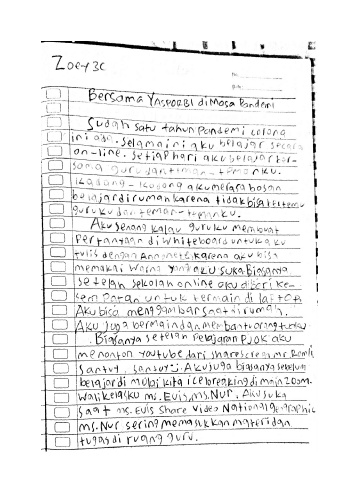 Zoey 3C
No.
Date.
Bersama YASPORBI di Masa Pandemi
Sudah satu tahun Pandemi corona
ini ada. selama ini aku belajar secara
on-line. setiap hari aku belajar ber-
sama guru dan teman-temanku.
kadang-kadang aku merasa bosan
belajar dirumah karena tidak bisa bertemu
guruku dan teman-temanku.
Aku senang kalau guruku membuat
Pertanyaan di whiteboard untuk aku
tulis dengan Annotate, karena aku bisa
memakai warna yang aku suka. Biasanya
setelah sekolah online aku diberi ke-
sempatan untuk bermain di laptop
Aku bisa menggambar saat dirumah.
Aku juga bermain dan membantu orang tuaku.
Biasanya setelah Pelajaran PJOK aku
menonton youtube dari sharescreen mr. Romli
santuy, sansuy. Aku juga biasanya sebelum
belajar di mulai kita icebreaking di main Zoom.
Walikelasku ms. Evis, ms. Nur. Aku suka
saat ms. Evis share video National geographic
ms. Nur sering memasukkan materi dan
tugas di ruang guru.